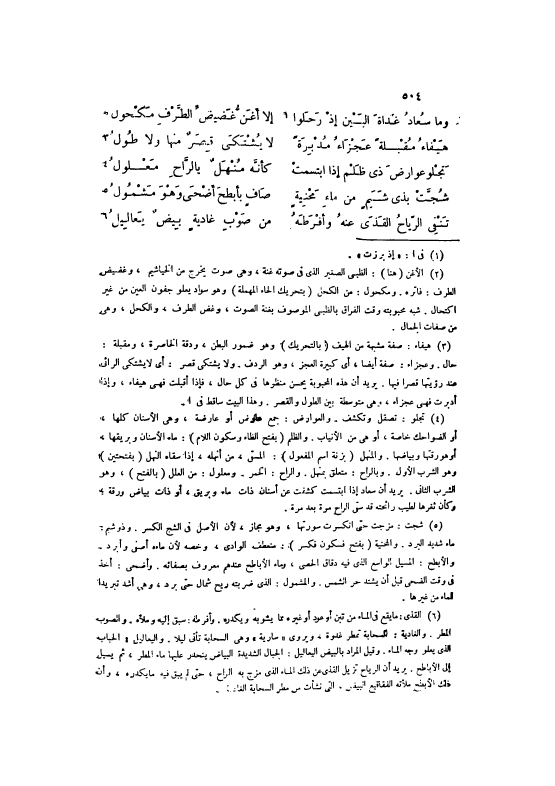 ٥٠٤
وما سُعادُ غداةَ البَيْنِ إذْ رَحَلوا ١ إلا أغَنُّ غَضيضُ الطَّرْفِ مَكْحولُ ٢
هَيْفاءُ مُقْبِلةً عَجْزاءُ مُدْبِرةً لا يُشْتَكَى قِصَرٌ منها ولا طولُ ٣
تجلو عوارضَ ذى ظَلْمٍ إذا ابتسمتْ كأنّه مُنْهَلٌ بالرَّاحِ مَعْلولُ ٤
شُجَّتْ بذى شَبَمٍ من ماءِ مَحْنِيةٍ صافٍ بأبطحَ أضْحَى وَهْوَ مَشْمولُ ٥
تَنْفِى الرّياحُ القَذَى عنهُ وأفْرَطَهُ من صَوْبِ غاديةٍ بيضٌ يَعاليلُ ٦
(١) فى ا : « إذ برزت » .
(٢) الأغن ( هنا ) : الظبى الصغير الذى فى صوته غنة ، وهى صوت يخرج من الخياشيم ، وغضيض
الطرف : فاتره . ومكحول : من الكحل ( بتحريك الحاء المهملة ) وهو سواد يعلو جفون العين من غير
اكتحال . شبه محبوبته وقت الفراق بالظبى الموصوف بغنة الصوت ، وغض الطرف ، والكحل ، وهى
من صفات الجمال .
(٣) هيفاء : صفة مشبهة من الهيف ( بالتحريك ) وهو ضمور البطن ، ودقة الخاصرة ، ومقبلة :
حال . وعجزاء : صفة أيضا ، أى كبيرة العجز ، وهو الردف . ولا يشتكى قصر : أى لايشتكى الرائى
عند رؤيتها قصرا فيها . يريد أن هذه المحبوبة يحسن منظرها فى كل حال ، فإذا أقبلت فهى هيفاء ، وإذا
أدبرت فهى عجزاء ، وهى متوسطة بين الطول والقصر . وهذا البيت ساقط فى ا .
(٤) تجلو : تصقل وتكشف . والعوارض : جمع عارض أو عارضة ، وهى الأسنان كلها ،
أو الضواحك خاصة ، أو هى من الأنياب . والظلم ( بفتح الظاء وسكون اللام ) : ماء الأسنان وبريقها ،
أو هو رقتها وبياضها . والمنهل ( بزنة اسم المفعول ) : المسقى ، من أنهله ، إذا سقاه النهل ( بفتحتين )
وهو الشرب الأول . وبالراح : متعلق بمنهل . والراح : الخمر . ومعلول : من العلل ( بالفتح ) ، وهو
الشرب الثانى . يريد أن سعاد إذا ابتسمت كشفت عن أسنان ذات ماء وبريق ، أو ذات بياض ورقة ؛
وكأن ثغرها لطيب رائحته قد سقى الراح مرة بعد مرة .
(٥) شجت : مزجت حتى انكسرت سورتها ، وهو مجاز ، لأن الأصل فى الشج الكسر . وذو شبم :
ماء شديد البرد . والمحنية ( بفتح فسكون فكسر ) : منعطف الوادى ، وخصه لأن ماءه أصفى وأبرد .
والأبطح : المسيل الواسع الذى فيه دقاق الحصى ، وماء الأباطح عندهم معروف بصفائه . وأضحى : أخذ
فى وقت الضحى قبل أن يشتد حر الشمس . والمشمول : الذى ضربته ريح شمال حتى برد ، وهى أشد تبريدا
للماء من غيرها .
(٦) القذى : مايقع فى الماء من تبن أو عود أو غيره مما يشوبه ويكدره . وأفرطه : سبق إليه وملأه . والصوب
المطر . والغادية : السحابة تمطر غدوة ، ويروى « سارية » وهى السحابة تأتى ليلا . واليعاليل : الحباب
الذى يعلو وجه الماء . وقيل المراد بالبيض اليعاليل : الجبال الشديدة البياض ينحدر عليها ماء المطر ، ثم يسيل
إلى الأباطح . يريد أن الرياح تزيل القذى عن ذلك الماء الذى مزج به الراح ، حتى لم يبق فيه مايكدره ، وأنه
ذلك الأبطح ملأته الفقاقيع البيض ، التى نشأت من مطر السحابة الغادية .